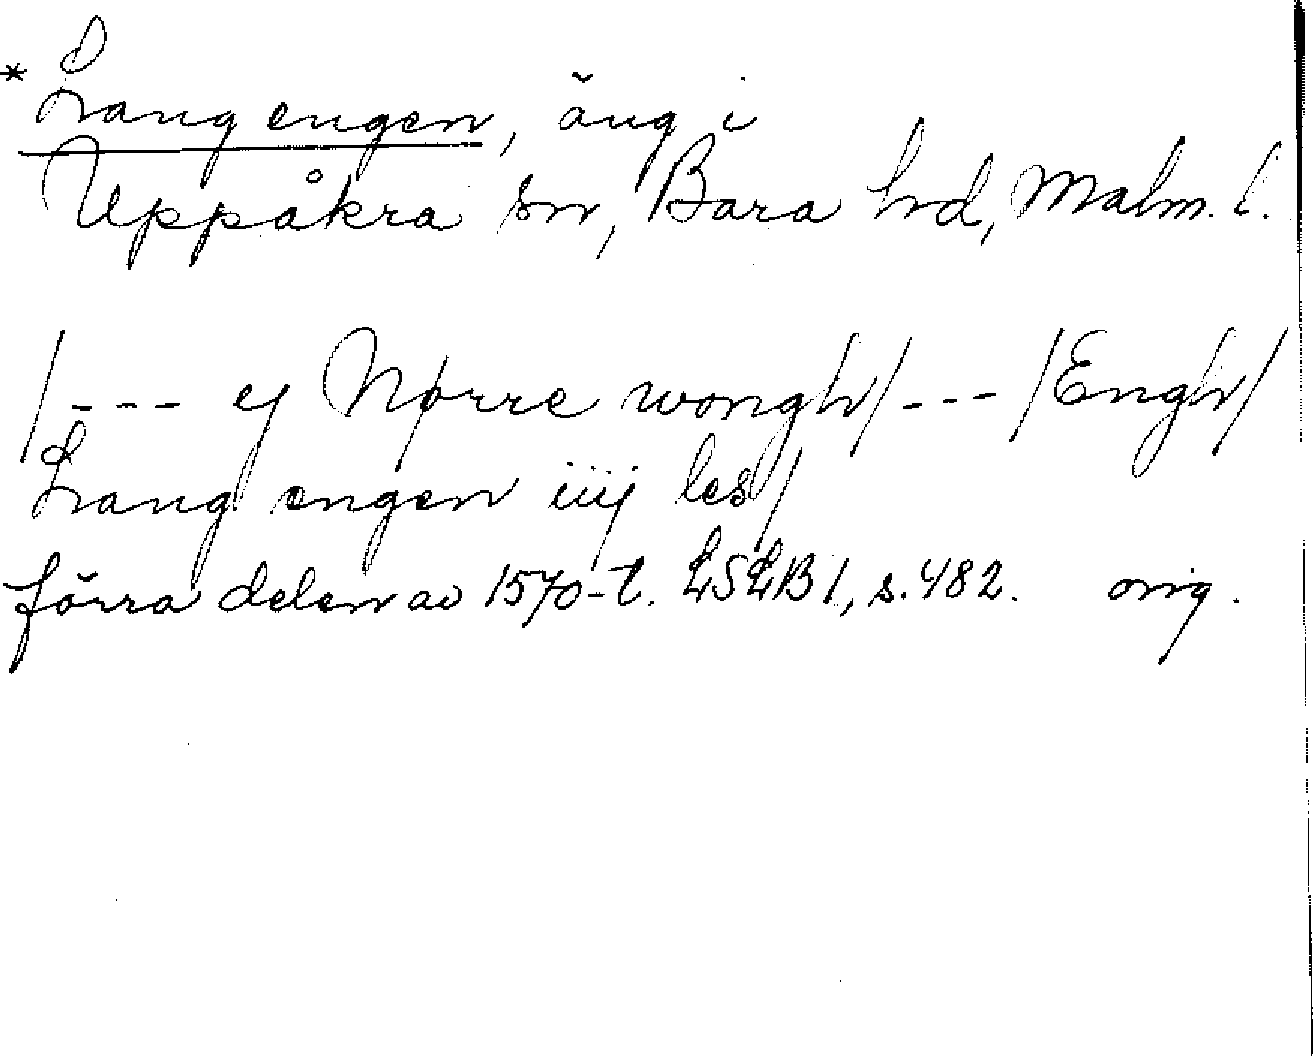 * Lang engen, äng i
Uppåkra sn, Bara hd, Malm. l.
/--- ej Nørre wongh/ --- /Engh/
Lang engen iiij les/
förra delen av 1570-t. LSLB 1, s. 482. orig.